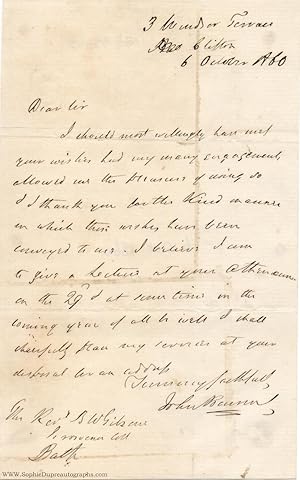 3 Windsor Terrace
Clifton
6 October 1860
Dear Sir
I should most willingly have met
your wishes had my many engagements
allowed me the pleasure of doing so
I thank you for the kind manner
in which those wishes have been
conveyed to me. I believe I am
to give a Lecture at your Athenaeum
on the at some time in the
coming year if all be well I shall
cheerfully place my services at your
disposal for an address
faithfully
John
The Revd B W Gibsone
Bath
www.SophieDupreautographs.com